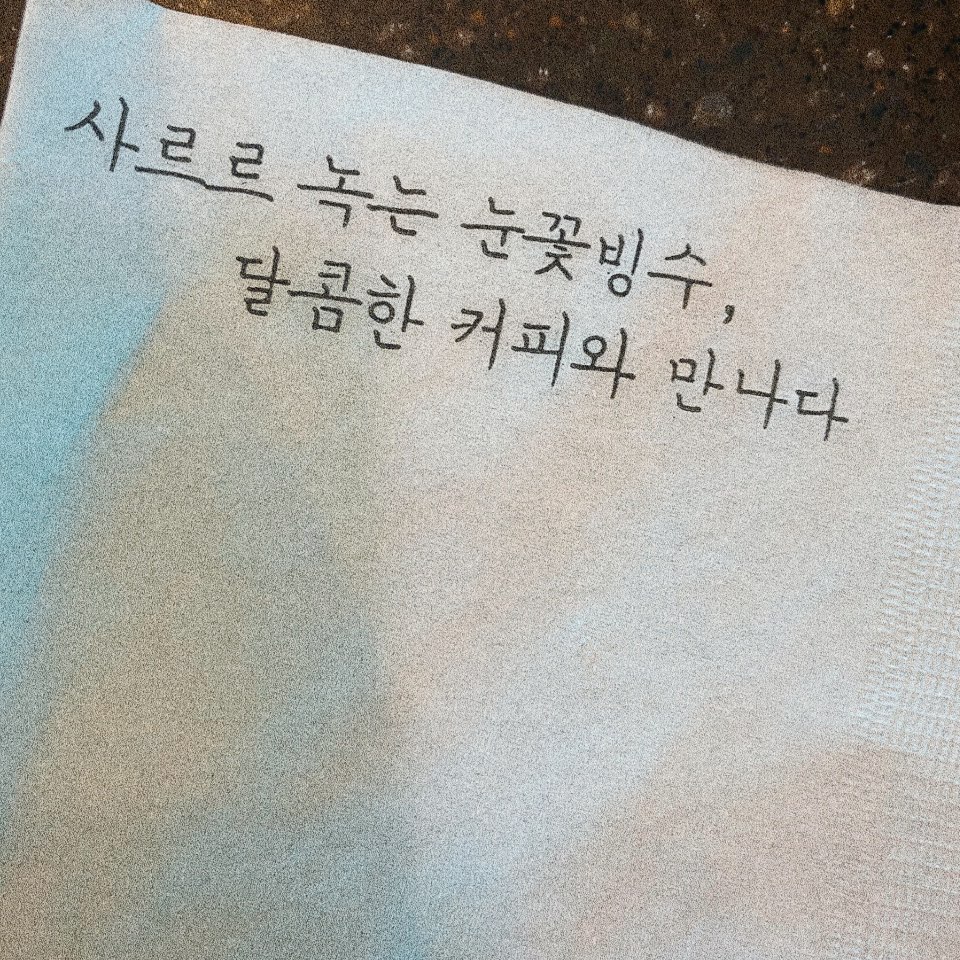 사르르 녹는 눈꽃빙수,
달콤한 커피와 만나다